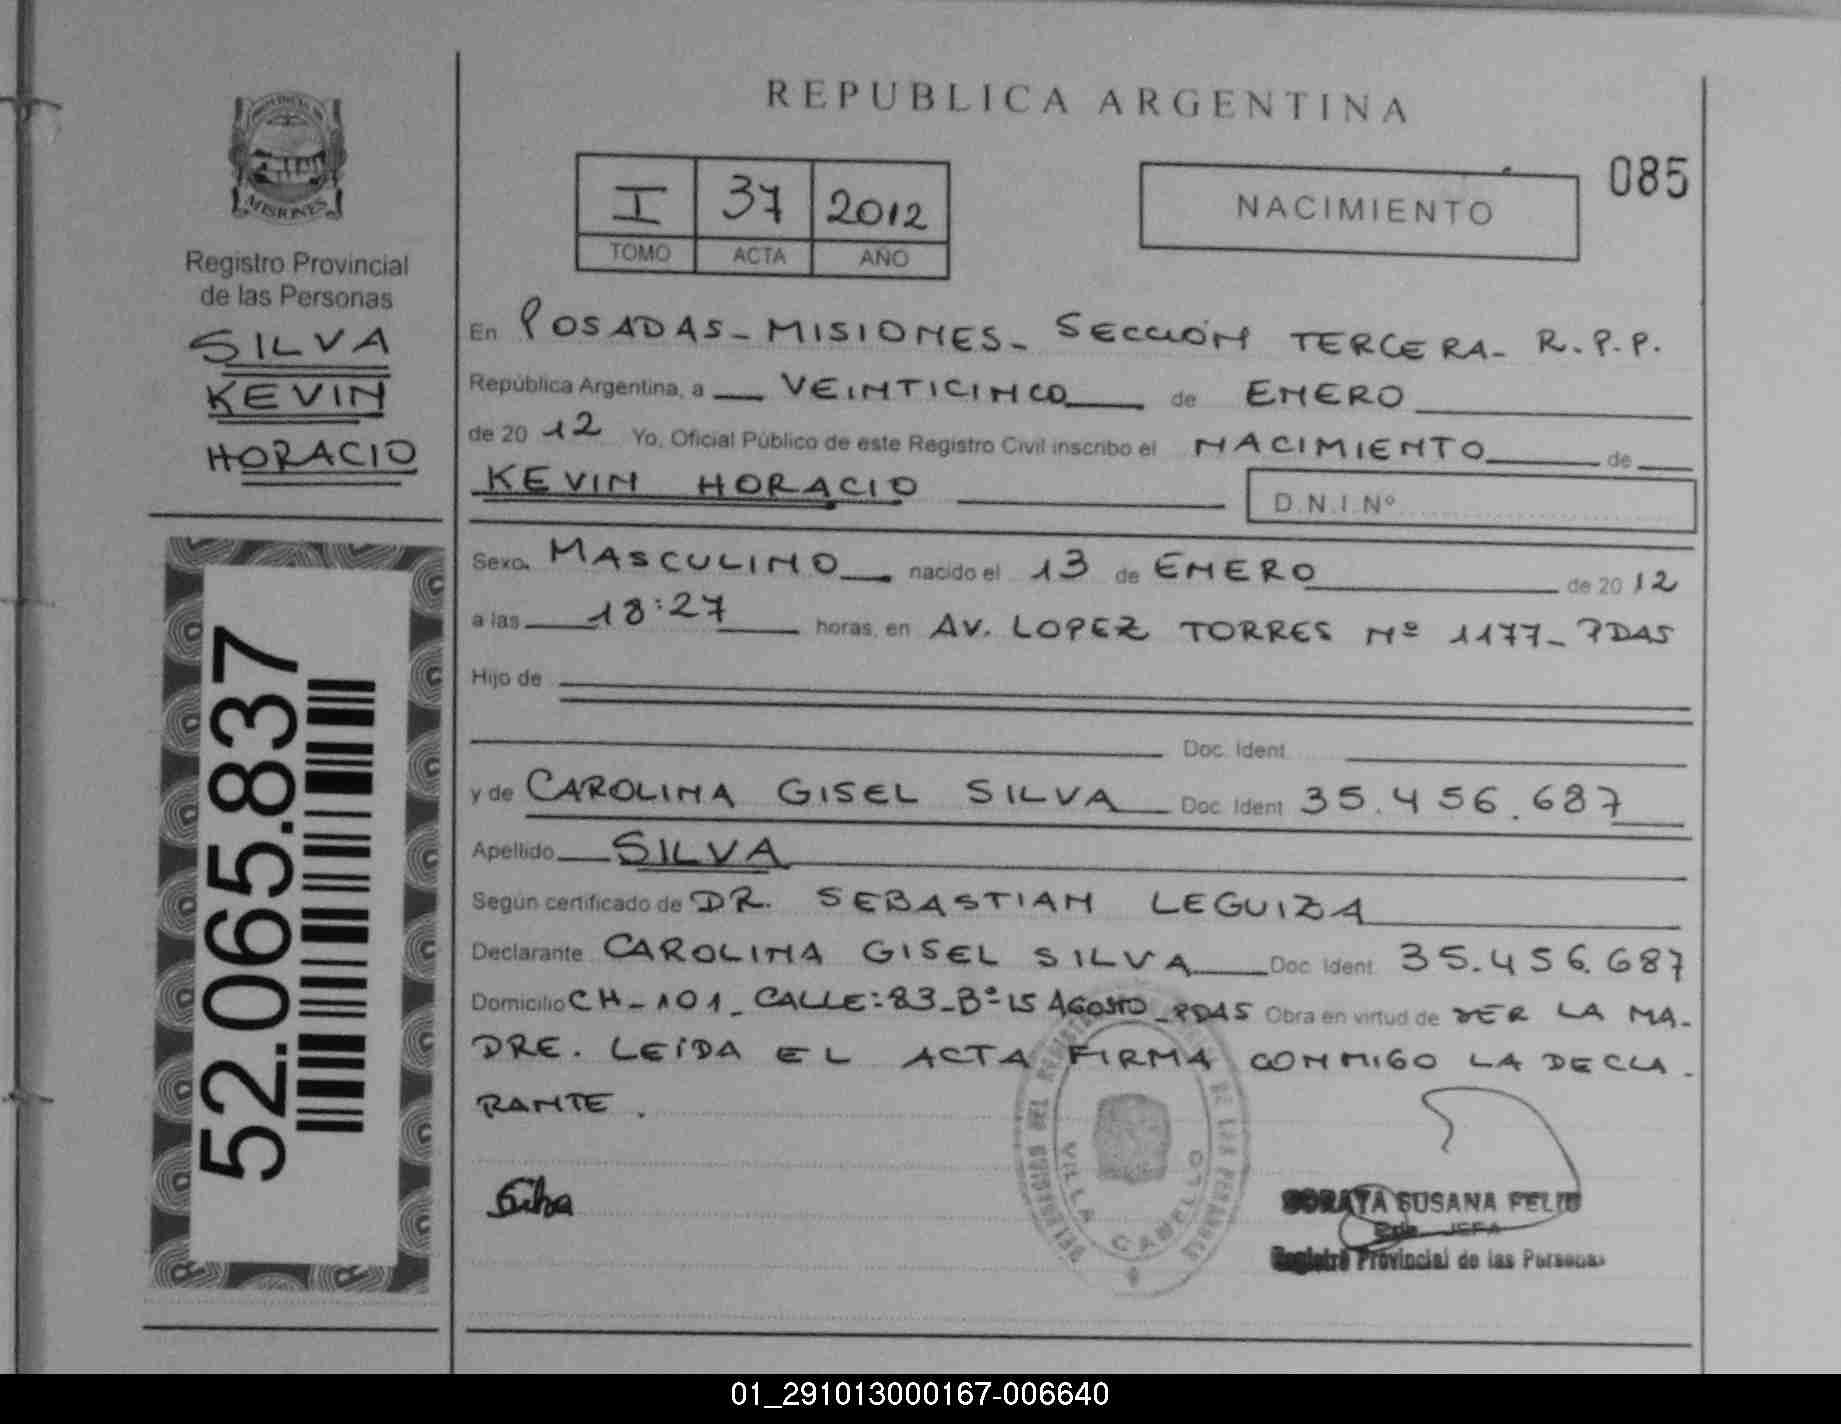 REPUBLICA ARGENTINA
085
I 37 2012
TOMO ACTA AÑO
NACIMIENTO
MISIONES
Registro Provincial
de las Personas
SILVA
KEVIN
HORACIO
52.065.837
En POSADAS - MISIONES - SECCIÓN TERCERA - R.P.P.
República Argentina, a VEINTICINCO de ENERO
de 20 12 Yo, Oficial Público de este Registro Civil inscribo el NACIMIENTO de
KEVIN HORACIO D.N.I.Nº
Sexo MASCULINO nacido el 13 de ENERO de 20 12
a las 18:27 horas, en AV. LOPEZ TORRES Nº 1177 - PDAS
Hijo de
Doc. Ident.
y de CAROLINA GISEL SILVA Doc. Ident 35.456.687
Apellido SILVA
Según certificado de DR. SEBASTIAN LEGUIZA
Declarante CAROLINA GISEL SILVA Doc. Ident. 35.456.687
Domicilio CH-101- CALLE: 83-Bº-15 AGOSTO - PDAS Obra en virtud de SER LA MA-
DRE. LEÍDA EL ACTA FIRMA CONMIGO LA DECLA-
RANTE.
Silva
VILLA CABELLO
SORAYA SUSANA FELIU
JEFA
Registro Provincial de las Personas
01_291013000167-006640